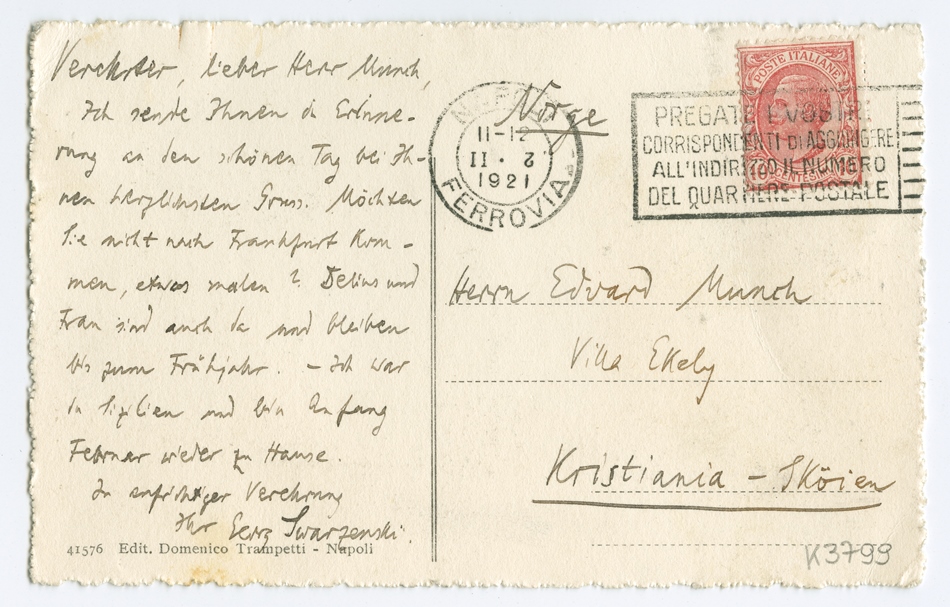 Verehrter, lieber Herr Munch,
Ich sende Ihnen in Erinne-
rung an den schönen Tag bei Ih-
nen herzlichsten Gruss. Möchten
Sie nicht nach Frankfurt Kom-
men, etwas malen? Delius und
Frau sind auch da und bleiben
bis zum Frühjahr. – Ich war
in Sizilien und bin Anfang
Februar wieder zu Hause.
In aufrichtiger Verehrung
Ihr Georg Swarzenski.
41576 Edit. Domenico Trampetti - Napoli
Norge
11-12
II · 2
1921
FERROVIA
POSTE ITALIANE
PREGATE I VOSTRI
CORRISPONDENTI DI AGGIUNGERE
ALL'INDIRIZZO IL NUMERO
DEL QUARTIERE POSTALE
Herrn Edvard Munch
Villa Ekely
Kristiania - Sköien
K3799